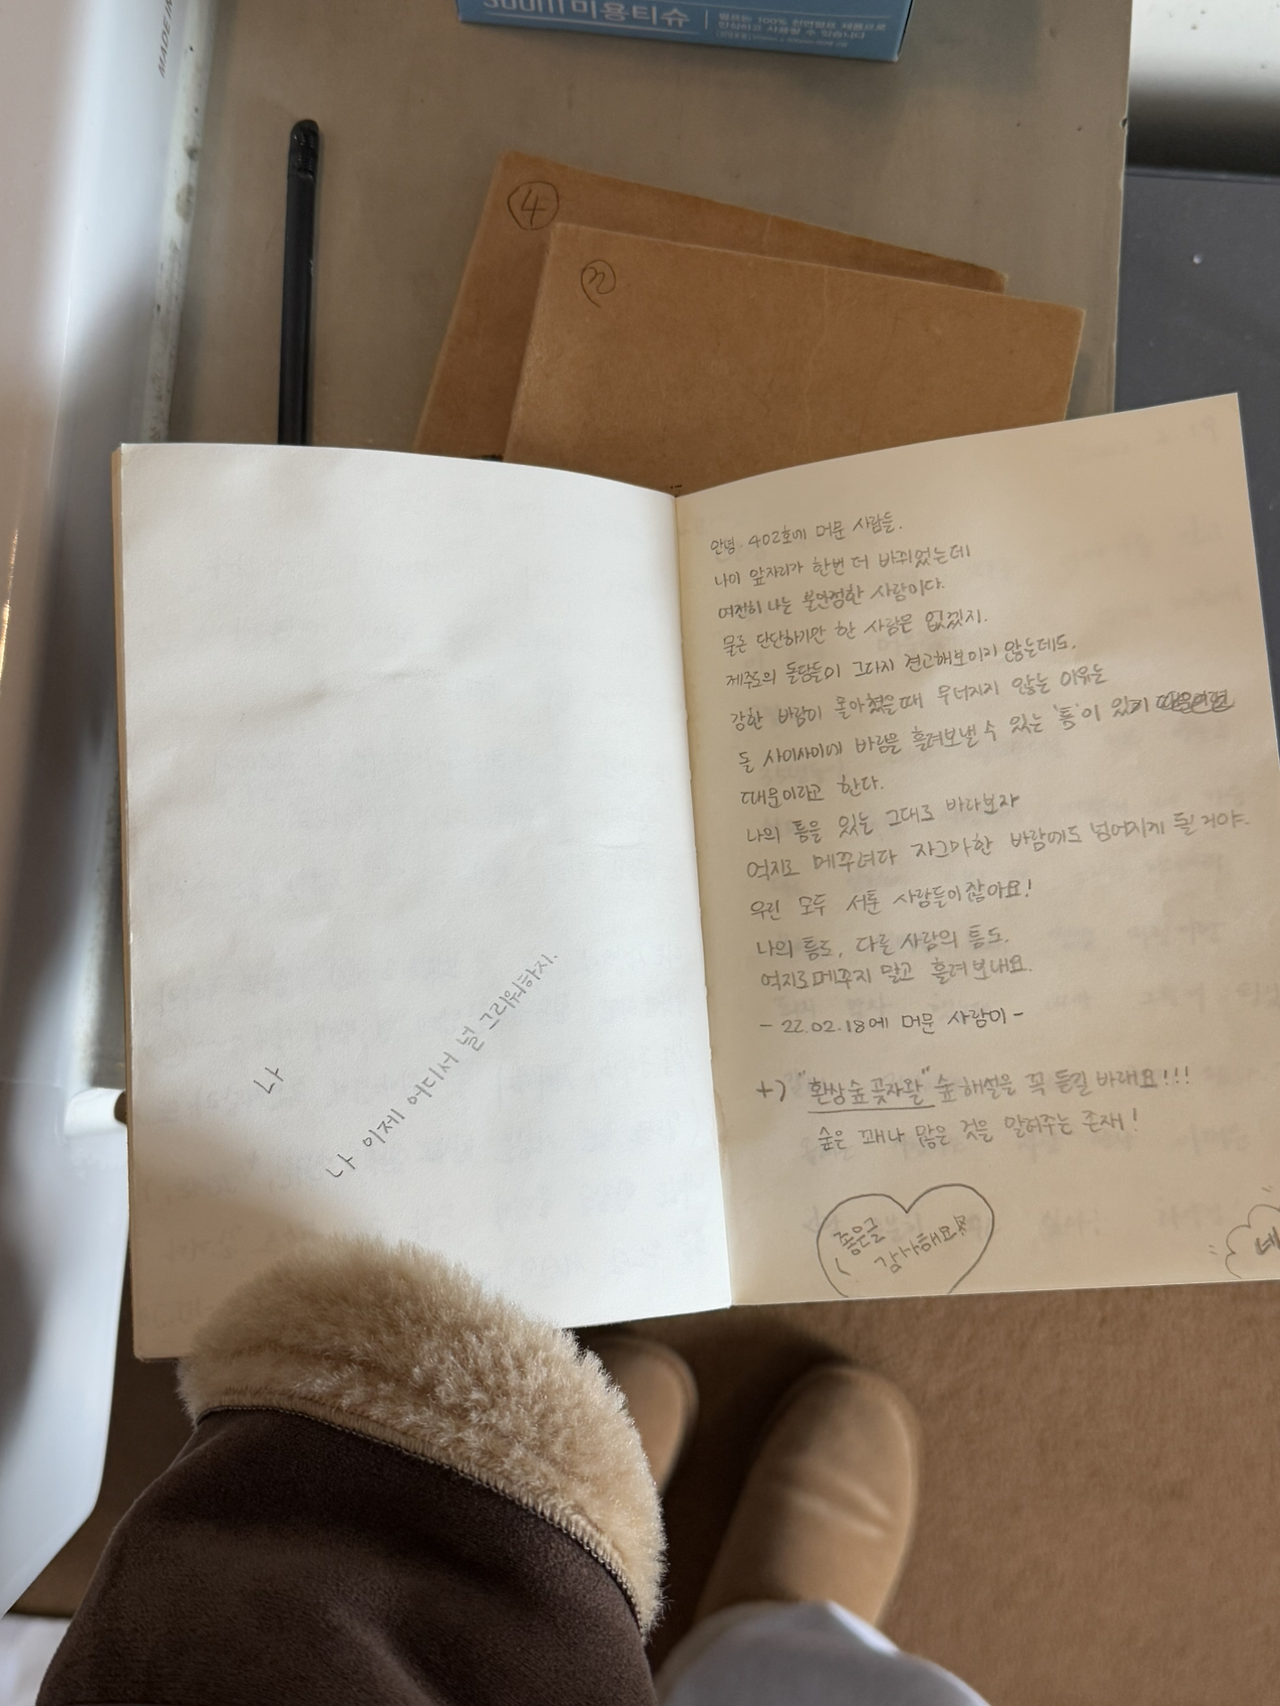 미용티슈
MADE IN
4
2
나
나 이제 어디서 널 그리워하지.
안녕. 402호에 머문 사람들.
나이 앞자리가 한번 더 바뀌었는데
여전히 나는 불안정한 사람이다.
물론 단단하기만 한 사람은 없겠지.
제주도의 돌담들이 그다지 견고해보이지 않는데도,
강한 바람이 몰아쳤을때 무너지지 않는 이유는
돌 사이사이에 바람을 흘려보낼 수 있는 '틈'이 있기
때문이라고 한다.
나의 틈을 있는 그대로 바라보자
억지로 메꾸려다 자그마한 바람에도 넘어지게 될 거야.
우린 모두 서툰 사람들이잖아요!
나의 틈도, 다른 사람의 틈도.
억지로 메꾸지 말고 흘려 보내요.
- 22.02.18에 머문 사람이 -
+) "환상숲 곶자왈" 숲 해설을 꼭 들길 바래요!!!
숲은 꽤나 많은 것을 알려주는 존재!
좋은글
감사해요
네